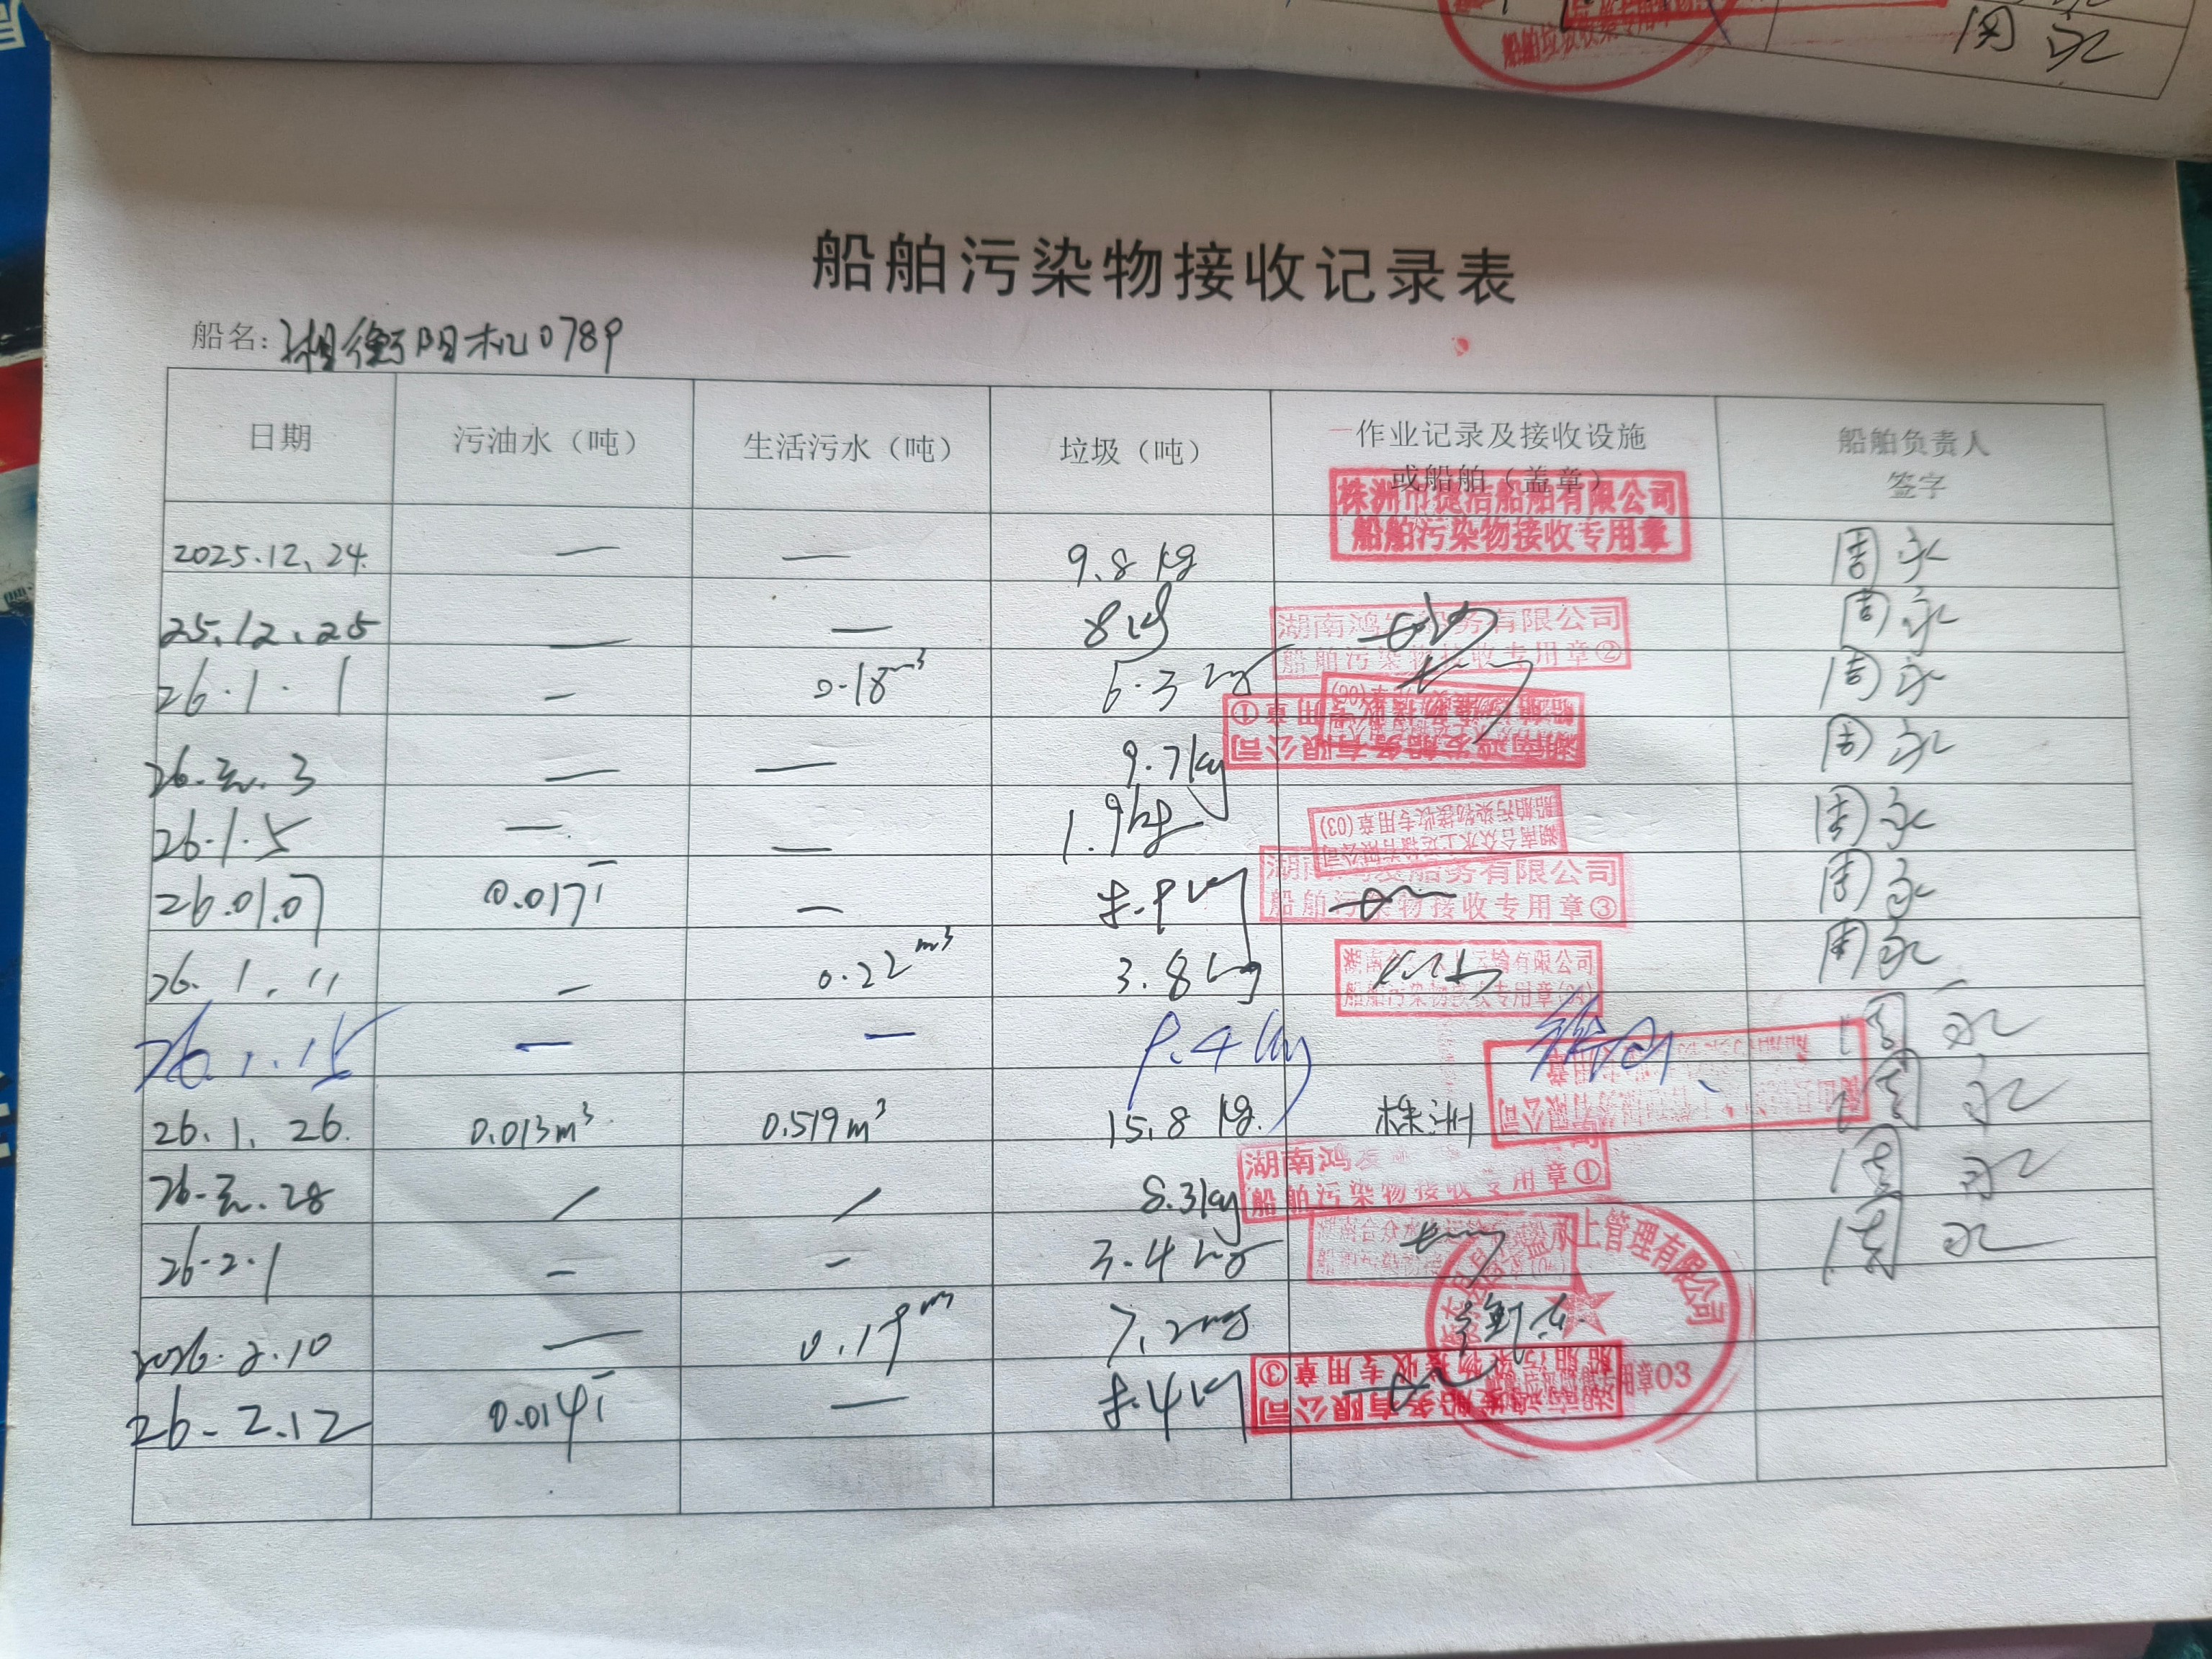 周永
船舶污染物接收记录表
船名：湘衡阳机0789
日期 污油水（吨） 生活污水（吨） 垃圾（吨） 作业记录及接收设施或船舶（盖章） 船舶负责人签字
2025.12.24. — — 9.8 kg 株洲市捷洁船舶有限公司 船舶污染物接收专用章 周永
25.12.25 — — 8kg 湖南鸿发船务有限公司 船舶污染物接收专用章② 周永
26.1.1 — 0.18m³ 6.3kg 周永
26.元.3 — — 9.7kg 湖南鸿发船务有限公司 船舶污染物接收专用章① 周永
26.1.5 — — 1.9kg 湖南合众水上运输有限公司 船舶污染物接收专用章(03) 周永
26.01.07 0.017T — 8.9kg 湖南鸿发船务有限公司 船舶污染物接收专用章③ 周永
26.1.11 — 0.22m³ 3.8kg 船舶污染物接收专用章 周永
26.1.15 — — 9.4kg 周永
26.1.26. 0.013m³ 0.519m³ 15.8kg. 株洲 周永
26.元.28 / / 8.3kg 湖南鸿发 船舶污染物接收专用章① 周永
26.2.1 — — 3.4kg 周永
2026.2.10 — 0.19m 7.2kg 衡东 水上管理有限公司 专用章03
26-2.12 0.014T — 8.4kg 湖南鸿发船务有限公司 船舶污染物接收专用章③